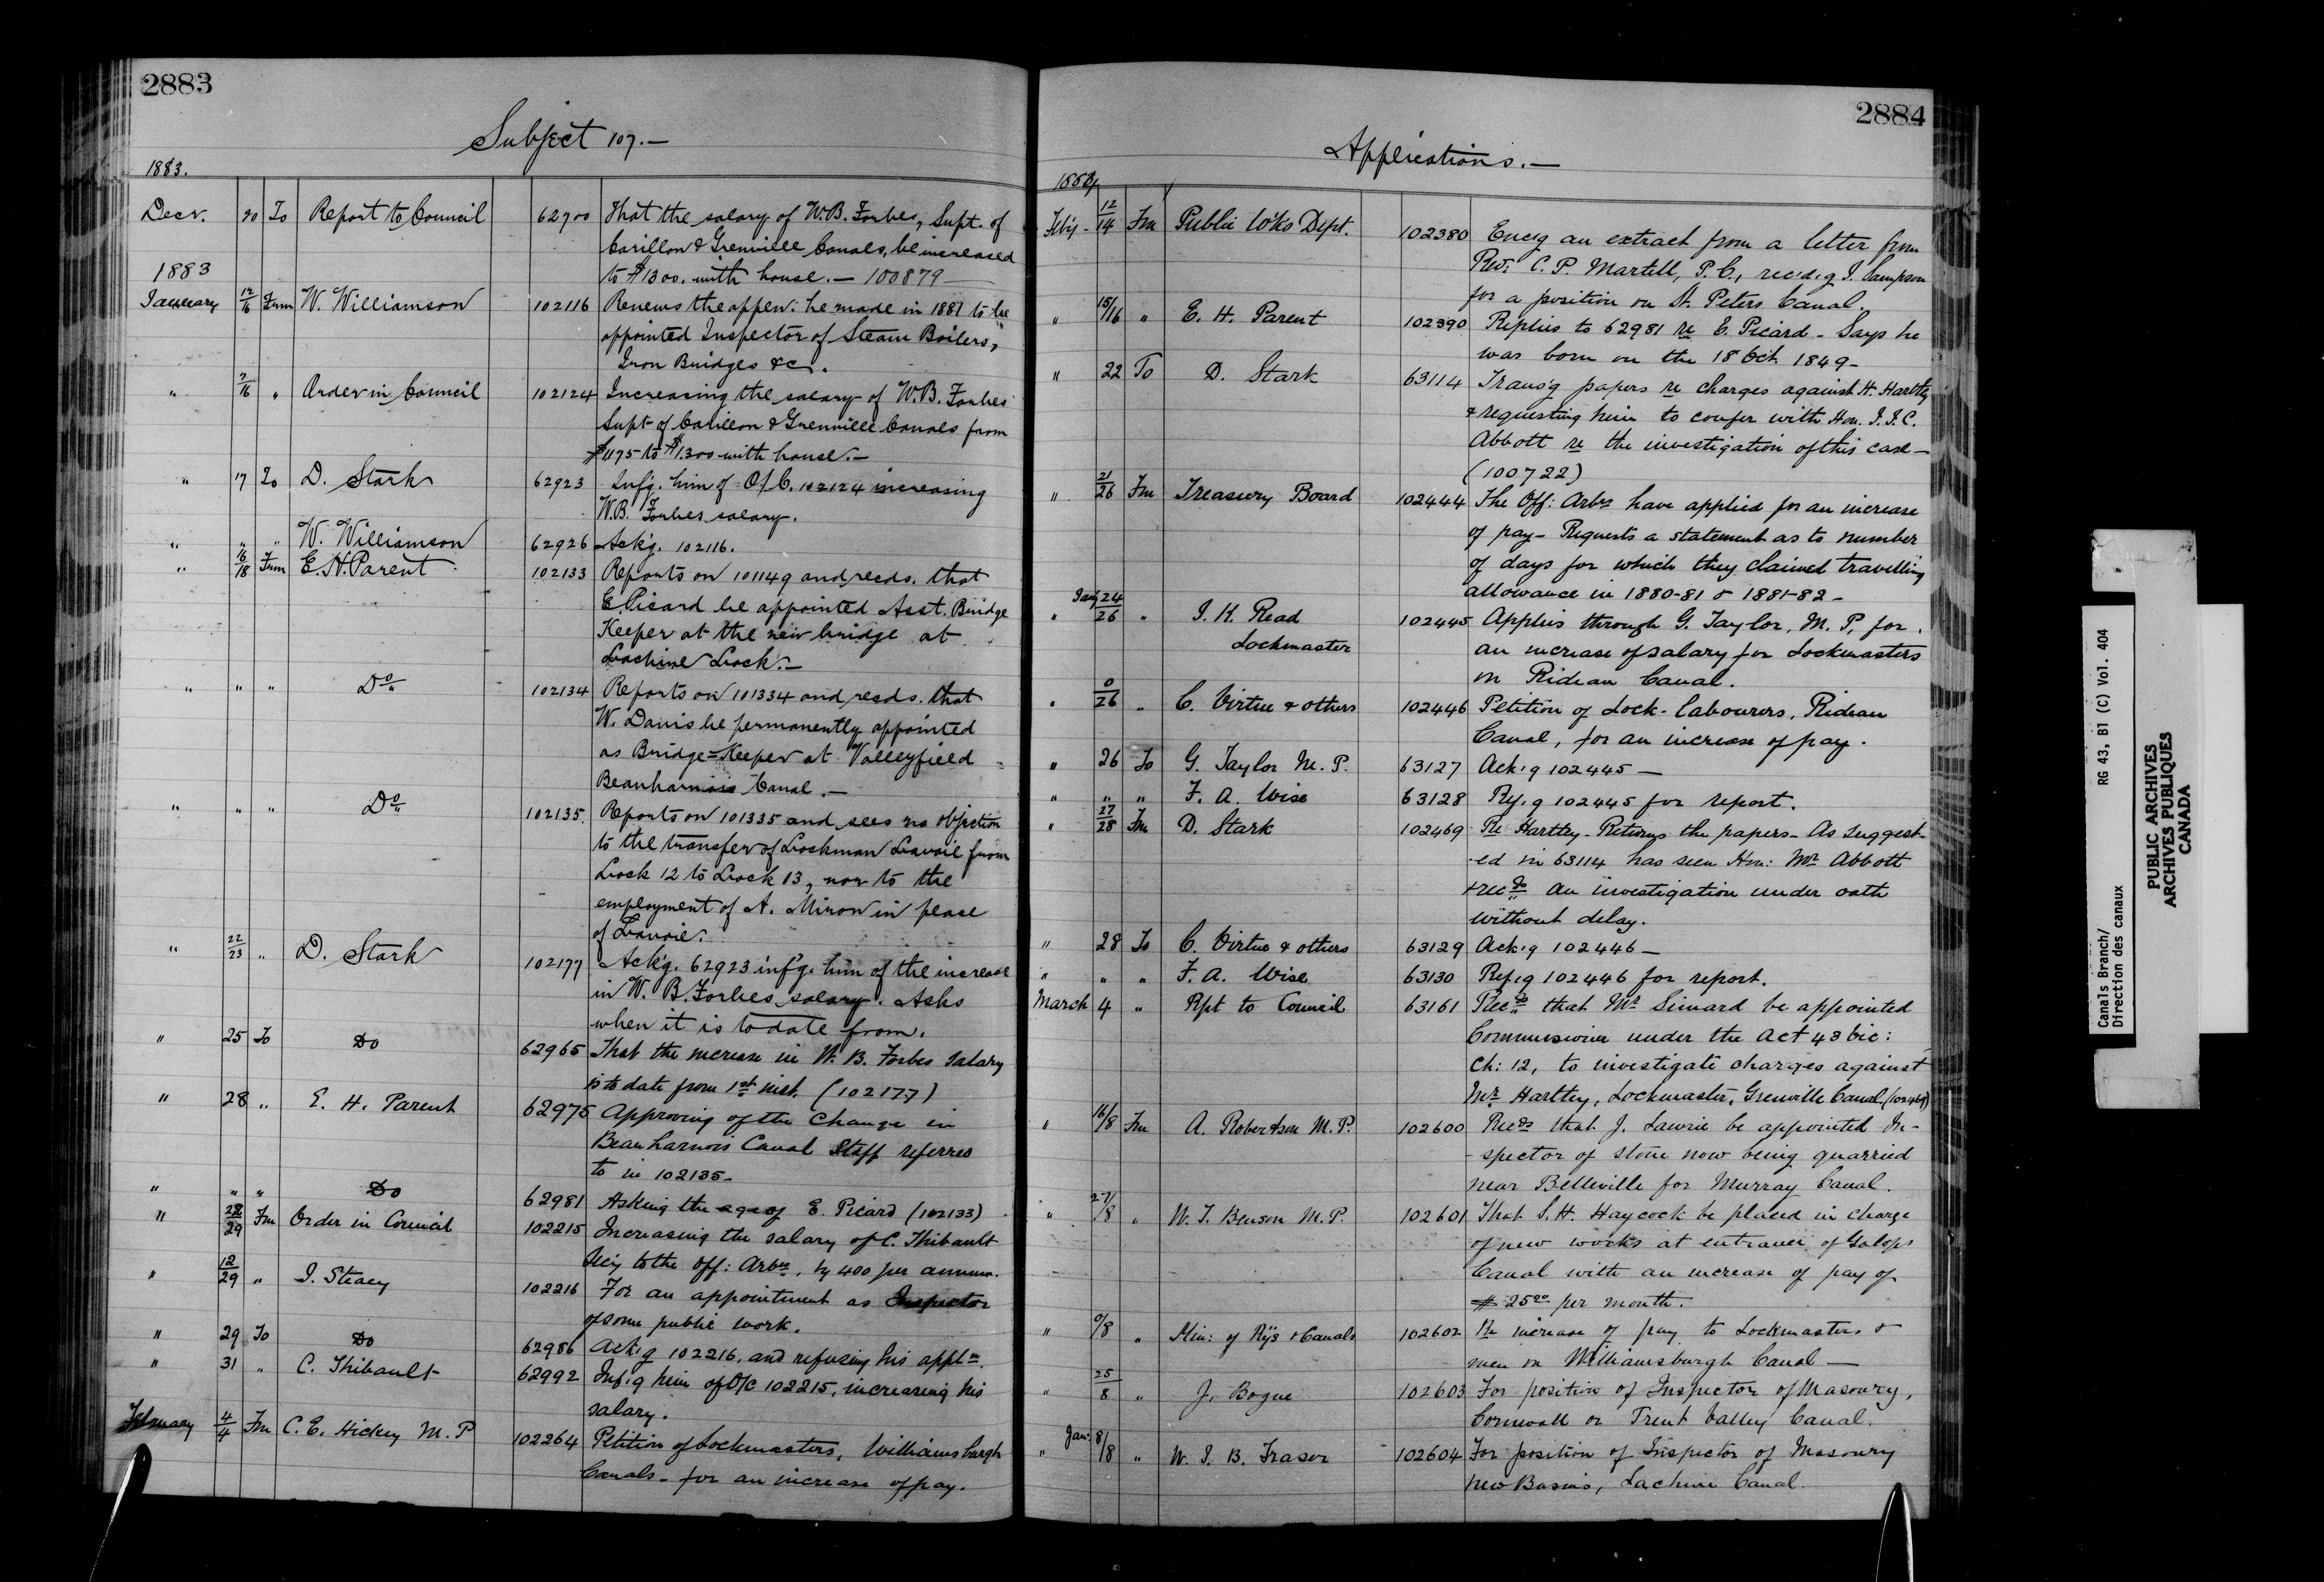 2883
Subject 107.—
1883.
Decr. 20 To Report to Council 62900 That the salary of W.B. Forbes, Supt. of
Carillon & Grenville Canals, be increased
to $1300. with house. — 100879 —
1883
January 12/16 From W. Williamson 102116 Renews the appcn. he made in 1881 to be
appointed Inspector of Steam Boilers,
Iron Bridges &c.
" 7/16 " Order in Council 102124 Increasing the salary of W.B. Forbes
Supt of Carillon & Grenville Canals from
$1175 to $1300 with house.—
" 17 To D. Stark 62923 Infg. him of O/C. 102124 increasing
W.B. Forbes salary.
" " " W. Williamson 62926 Ackg. 102116.
" 16/18 From E. H. Parent 102133 Reports on 101149 and recds. that
E. Picard be appointed Asst. Bridge
Keeper at the new bridge at
Lachine Lock.—
" " " Do 102134 Reports on 101334 and recds. that
W. Davis be permanently appointed
as Bridge=Keeper at Valleyfield
Beauharnois Canal.—
" " " Do 102135. Reports on 101335 and sees no objection
to the transfer of Lockman Lavoie from
Lock 12 to Lock 13, nor to the
employment of A. Miron in place
of Lavoie.
" 22/23 " D. Stark 102177 Ackg. 62923 infg. him of the increase
in W. B. Forbes salary. Asks
when it is to date from.
" 25 To Do 62965 That the increase in W. B. Forbes salary
is to date from 1st inst. (102177)
" 28 " E. H. Parent 62975 Approving of the change in
Beauharnois Canal Staff referred
to in 102135-
" " " Do 62981 Asking the age of E. Picard (102133)
" 28/29 Fm Order in Council 102215 Increasing the salary of C. Thibault
Secy to the Off: Arbrs. by 400 per annum.
" 12/29 " I. Stacy 102216 For an appointment as Inspector
of some public work.
" 29 To Do 62986 Ackg 102216, and refusing his appln.
" 31 " C. Thibault 62992 Infg him of O/C 102215, increasing his
salary.
February 4/4 Fm C. E. Hickey M. P 102264 Petition of Lockmasters, Williamsburgh
Canals - for an increase of pay.
2884
Applications.—
1884
Feb'y - 12/14 Fm Public W'ks Dept. 102380 Encg an extract from a letter from
Rev: C. P. Martell, P.C., rec'd.g J. Sampson
for a position on St. Peters Canal.
" 15/16 " E. H. Parent 102390 Replies to 62981 re E. Picard - Says he
was born on the 18 Oct. 1849-
" 22 To D. Stark 63114 Transg papers re charges against H. Hartley
& requesting him to confer with Hon. J. J. C.
Abbott re the investigation of this case —
(100722)
" 21/26 Fm Treasury Board 102444 The Off: Arbrs have applied for an increase
of pay - Requests a statement as to number
of days for which they claimed travelling
allowance in 1880-81 & 1881-82-
" Jany 24/26 " J. K. Read 102445 Applies through G. Taylor, M. P. for
Lockmaster an increase of salary for Lockmasters
on Rideau Canal.
" 0/26 " C. Virtue & others 102446 Petition of Lock-labourers, Rideau
Canal, for an increase of pay.
" 26 To G. Taylor M. P. 63127 Ack'g 102445 —
" " " F. A. Wise 63128 Ref.g 102445 for report.
" 27/28 Fm D. Stark 102469 Re Hartley - Returns the papers - As suggest-
-ed in 63114 has seen Hon: Mr Abbott
& recds an investigation under oath
without delay.
" 28 To C. Virtue & others 63129 Ack'g 102446 —
" " " F. A. Wise 63130 Ref.g 102446 for report.
March 4 " Rpt to Council 63161 Recds that Mr Simard be appointed
Commissioner under the Act 43 Vic:
Ch: 12, to investigate charges against
Mr. Hartley, Lockmaster, Grenville Canal (102469)
" 16/8 Fm A. Robertson M. P. 102600 Recds that J. Lawrie be appointed In-
-spector of stone now being quarried
near Belleville for Murray Canal.
" 27/8 " W. T. Benson M. P. 102601 That S. H. Haycock be placed in charge
of new works at entrance of Galops
Canal with an increase of pay of
$25.00 per month.
" 0/8 " Min: of Rys & Canals 102602 Re increase of pay to Lockmasters &
men on Williamsburgh Canal —
" 25/8 " J. Bogue 102603 For position of Inspector of Masonry,
Cornwall or Trent Valley Canal.
" Jan: 8/8 " W. J. B. Fraser 102604 For position of Inspector of Masonry
new Basins, Lachine Canal.
Canals Branch/ RG 43, B1 (C) Vol. 404
Direction des canaux
PUBLIC ARCHIVES
ARCHIVES PUBLIQUES
CANADA